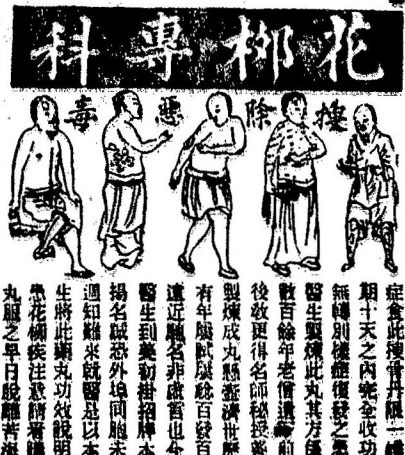 花柳專科
搜除惡毒
症食此搜骨丹限一禮
期十天之內完全收功
無轉別樣症復發之患
醫生製煉此丸其方係
數百餘年老僧遺傳前
後敎更得名師秘授
製煉成丸懸壺濟世歷
有年屢試屢驗百發百
遠近馳名非虛言也今
醫生到美勒掛招牌本
揚名誠恐外埠同胞未
週知難來就醫是以本
生將此藥丸功效說明
患花柳疾注意請看
丸服之早日脫離苦海